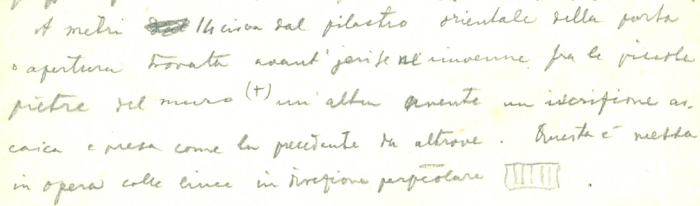 A metri 14 circa dal pilastro orientale della porta
o apertura trovata avant'jeri se ne rinvenne fra le piccole
pietre del muro (+) un'altra avente un iscrizione ar-
caica e presa come la precedente da altrove. Questa è messa
in opera colle linee in direzione perpēcolare